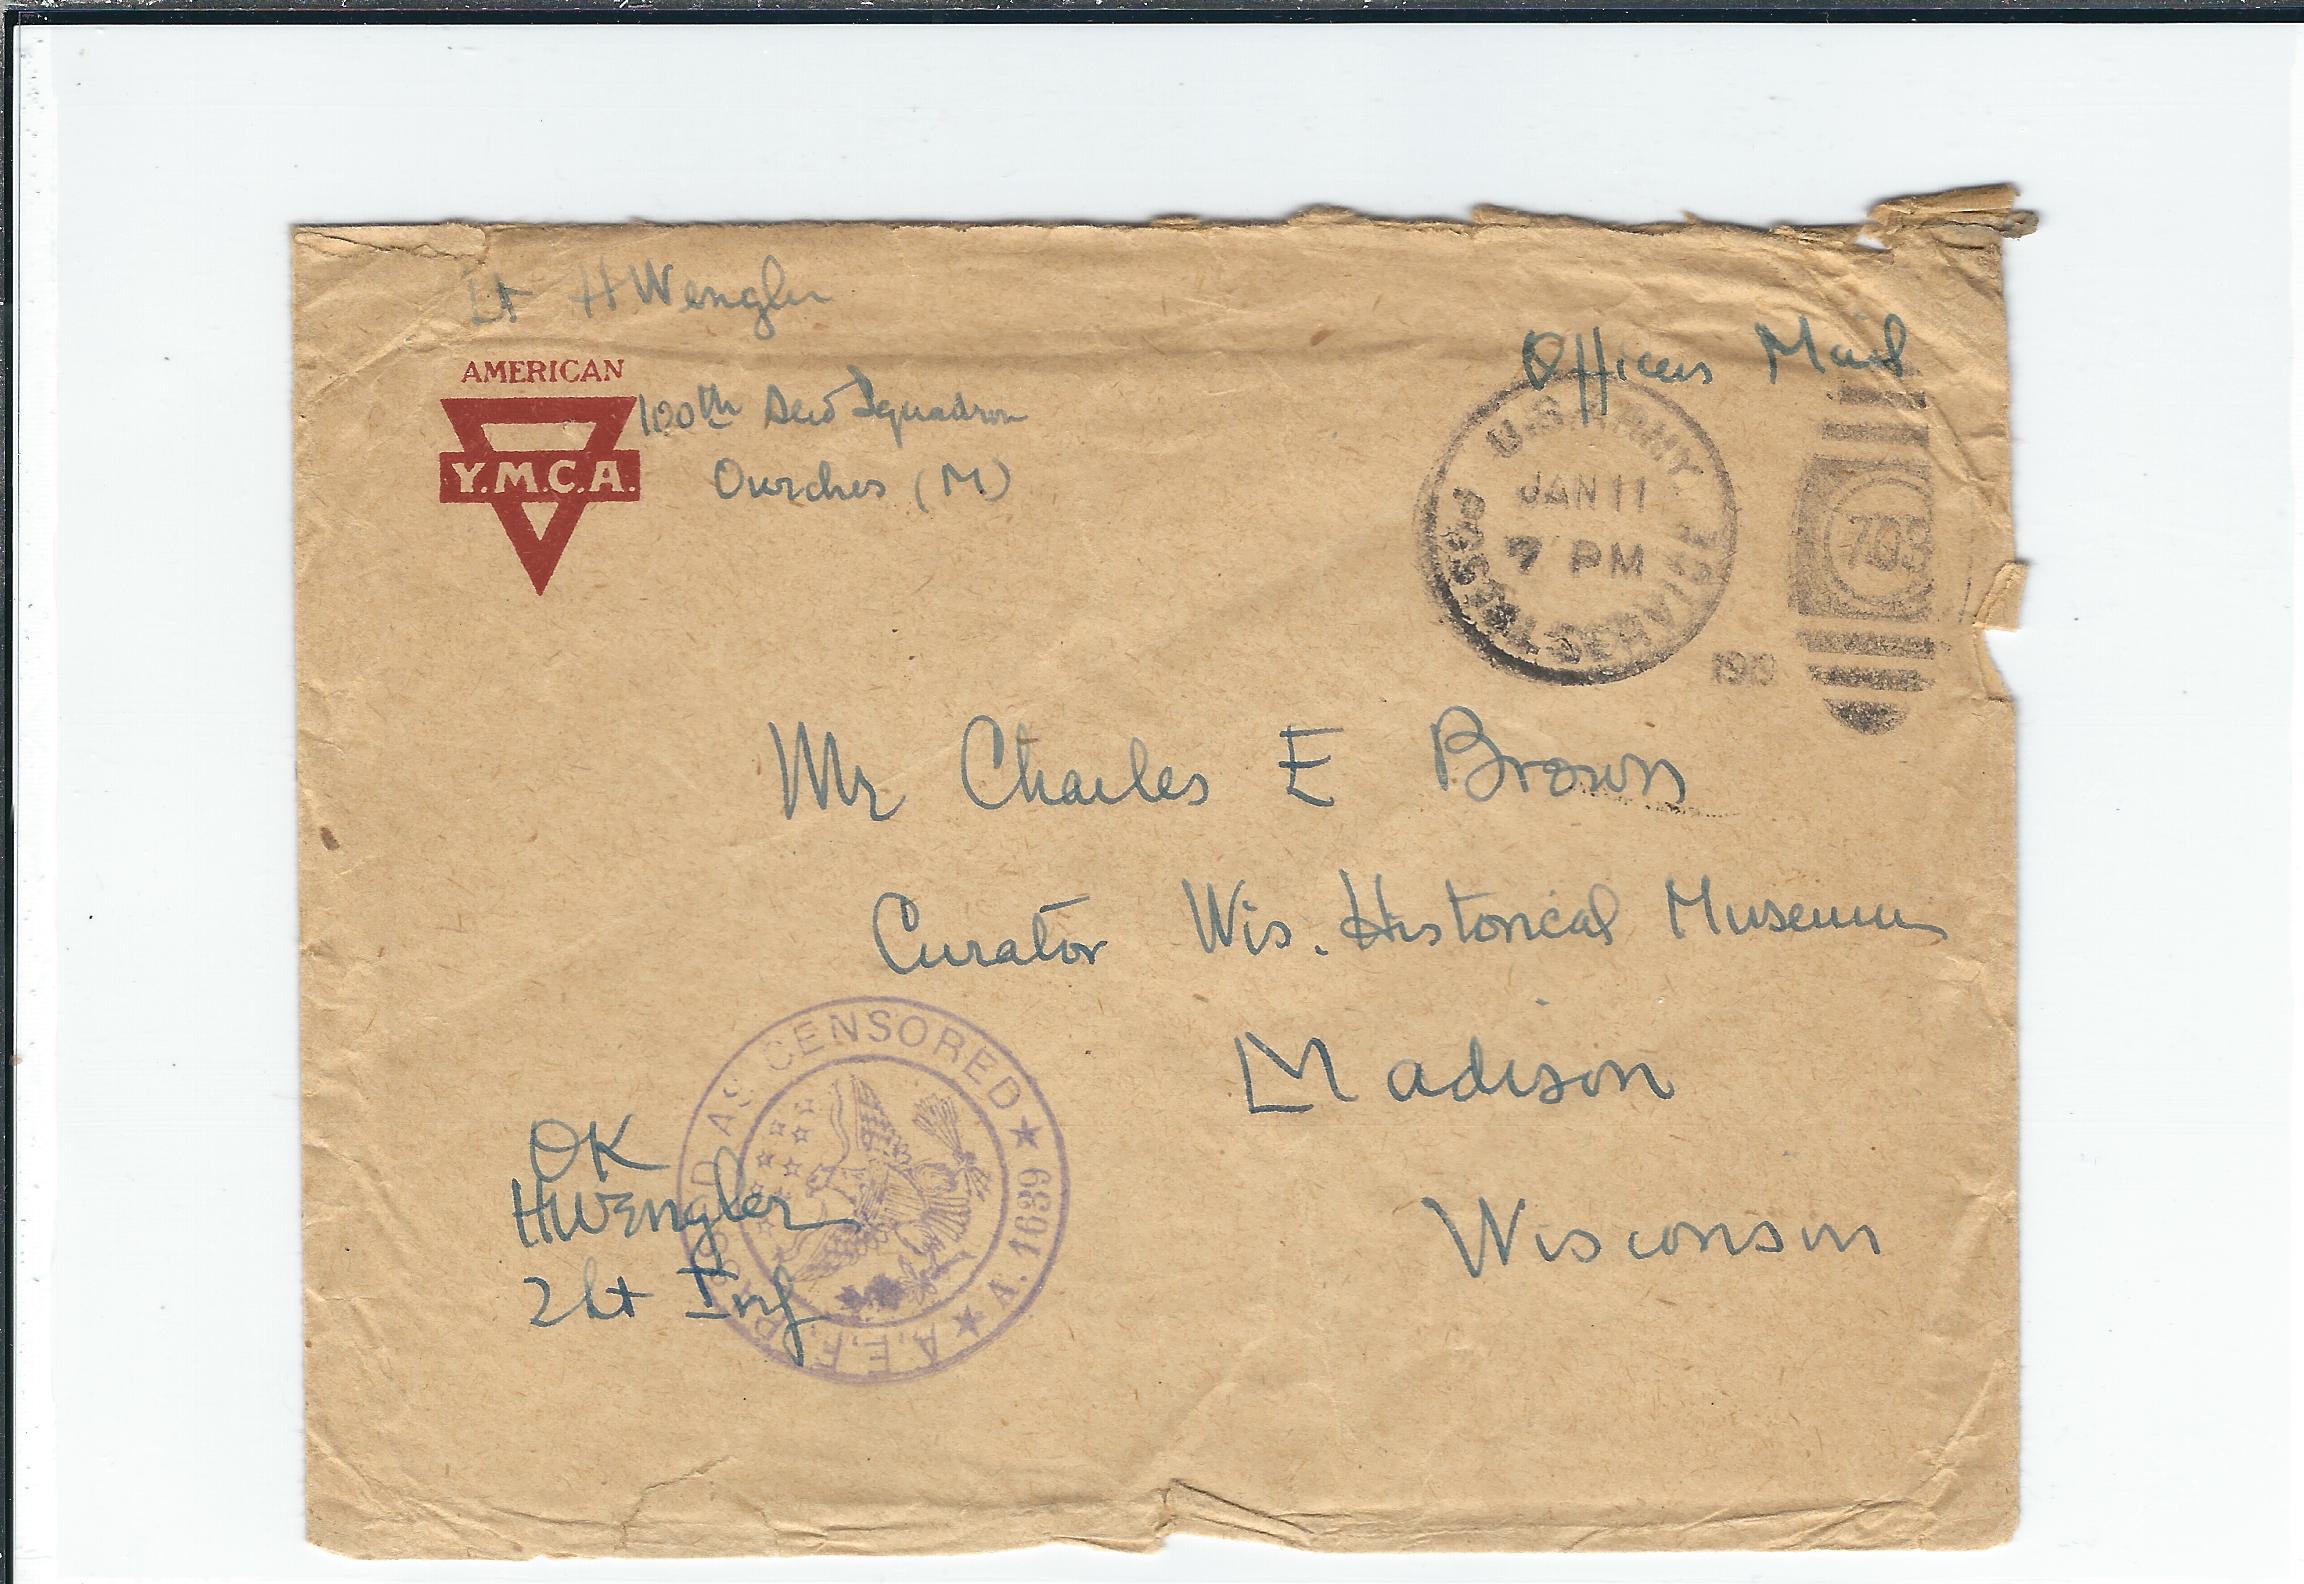 Lt H Wengler
AMERICAN
Y.M.C.A.
100th Aero Squadron
Ourches (M)
Officers Mail
U.S. ARMY
POSTAL SERVICE
JAN 11
7 PM
705
Mr Charles E Brown
Curator Wis. Historical Museum
Madison
Wisconsin
OK
HWEngler
2 Lt Inf
A.E.F. PASSED AS CENSORED ★ A. 1639 ★